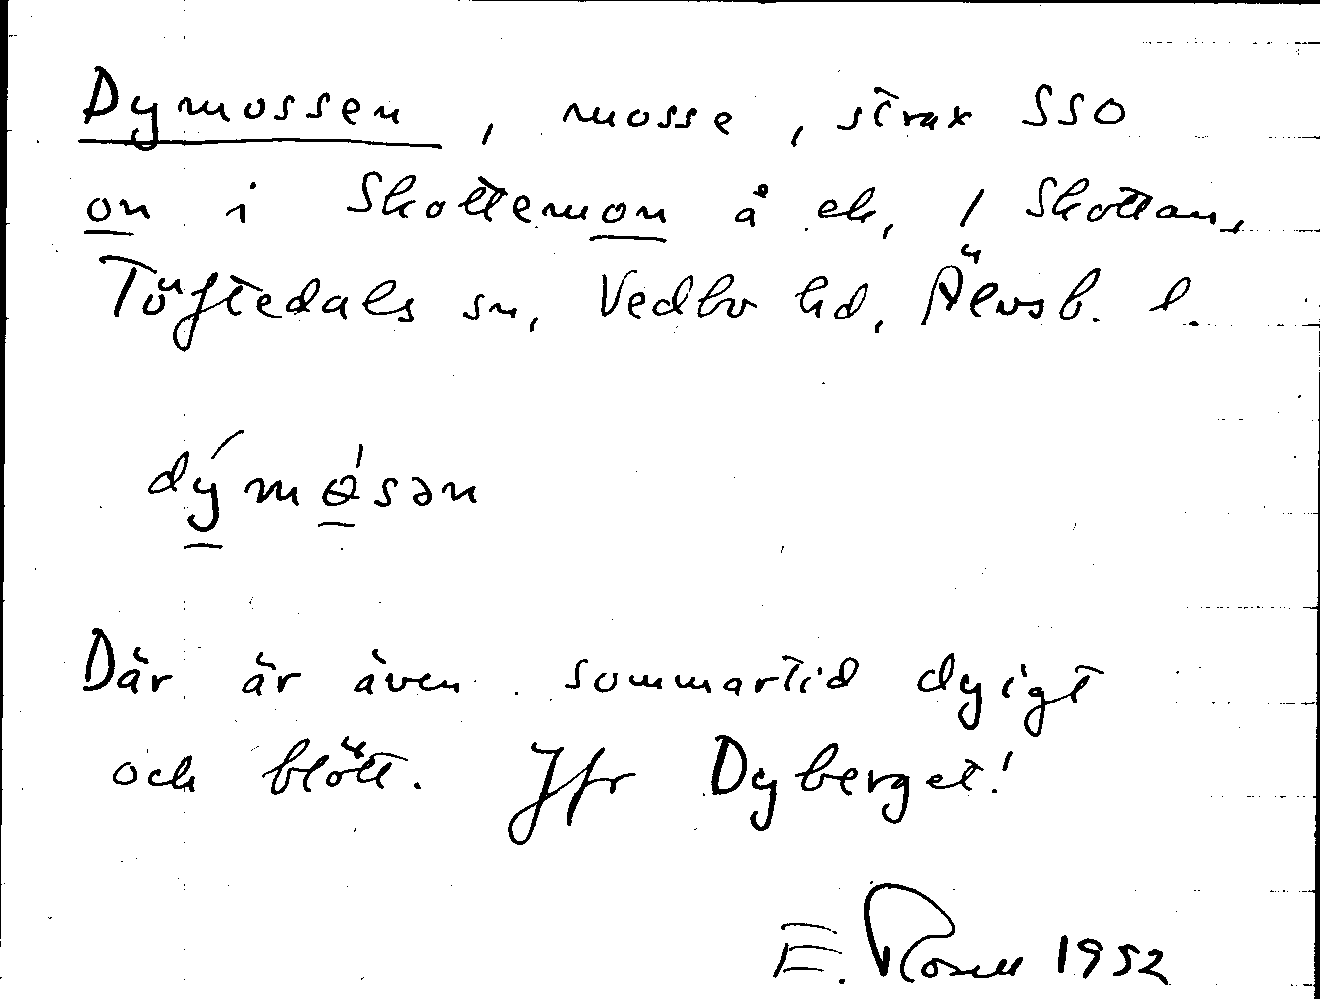 Dymossen, mosse, strax SSO
on i Skottemon å ek, / Skottan,
Töftedals sn, Vedbo hd, Älvsb. l.
dýmɵ́sən
Där är även sommartid dyigt
och blött. Jfr Dyberget!
E. Rosell 1952